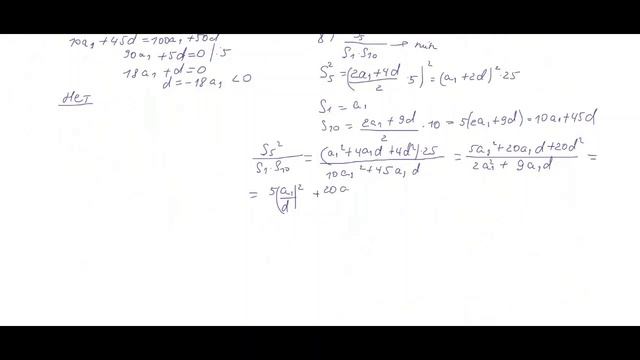 10a₁ + 45d = 100a₁ + 50d
90a₁ + 5d = 0 | :5
18a₁ + d = 0
d = -18a₁ < 0
Нет
в) S₅² / S₁·S₁₀ → min
S₅² = ((2a₁+4d)/2 · 5)² = (a₁+2d)²·25
S₁ = a₁
S₁₀ = (2a₁+9d)/2 · 10 = 5(2a₁+9d) = 10a₁+45d
S₅²/(S₁·S₁₀) = (a₁²+4a₁d+4d²)·25 / (10a₁²+45a₁d) = (5a₁²+20a₁d+20d²) / (2a₁²+9a₁d) =
= 5(a₁/d)² + 20a